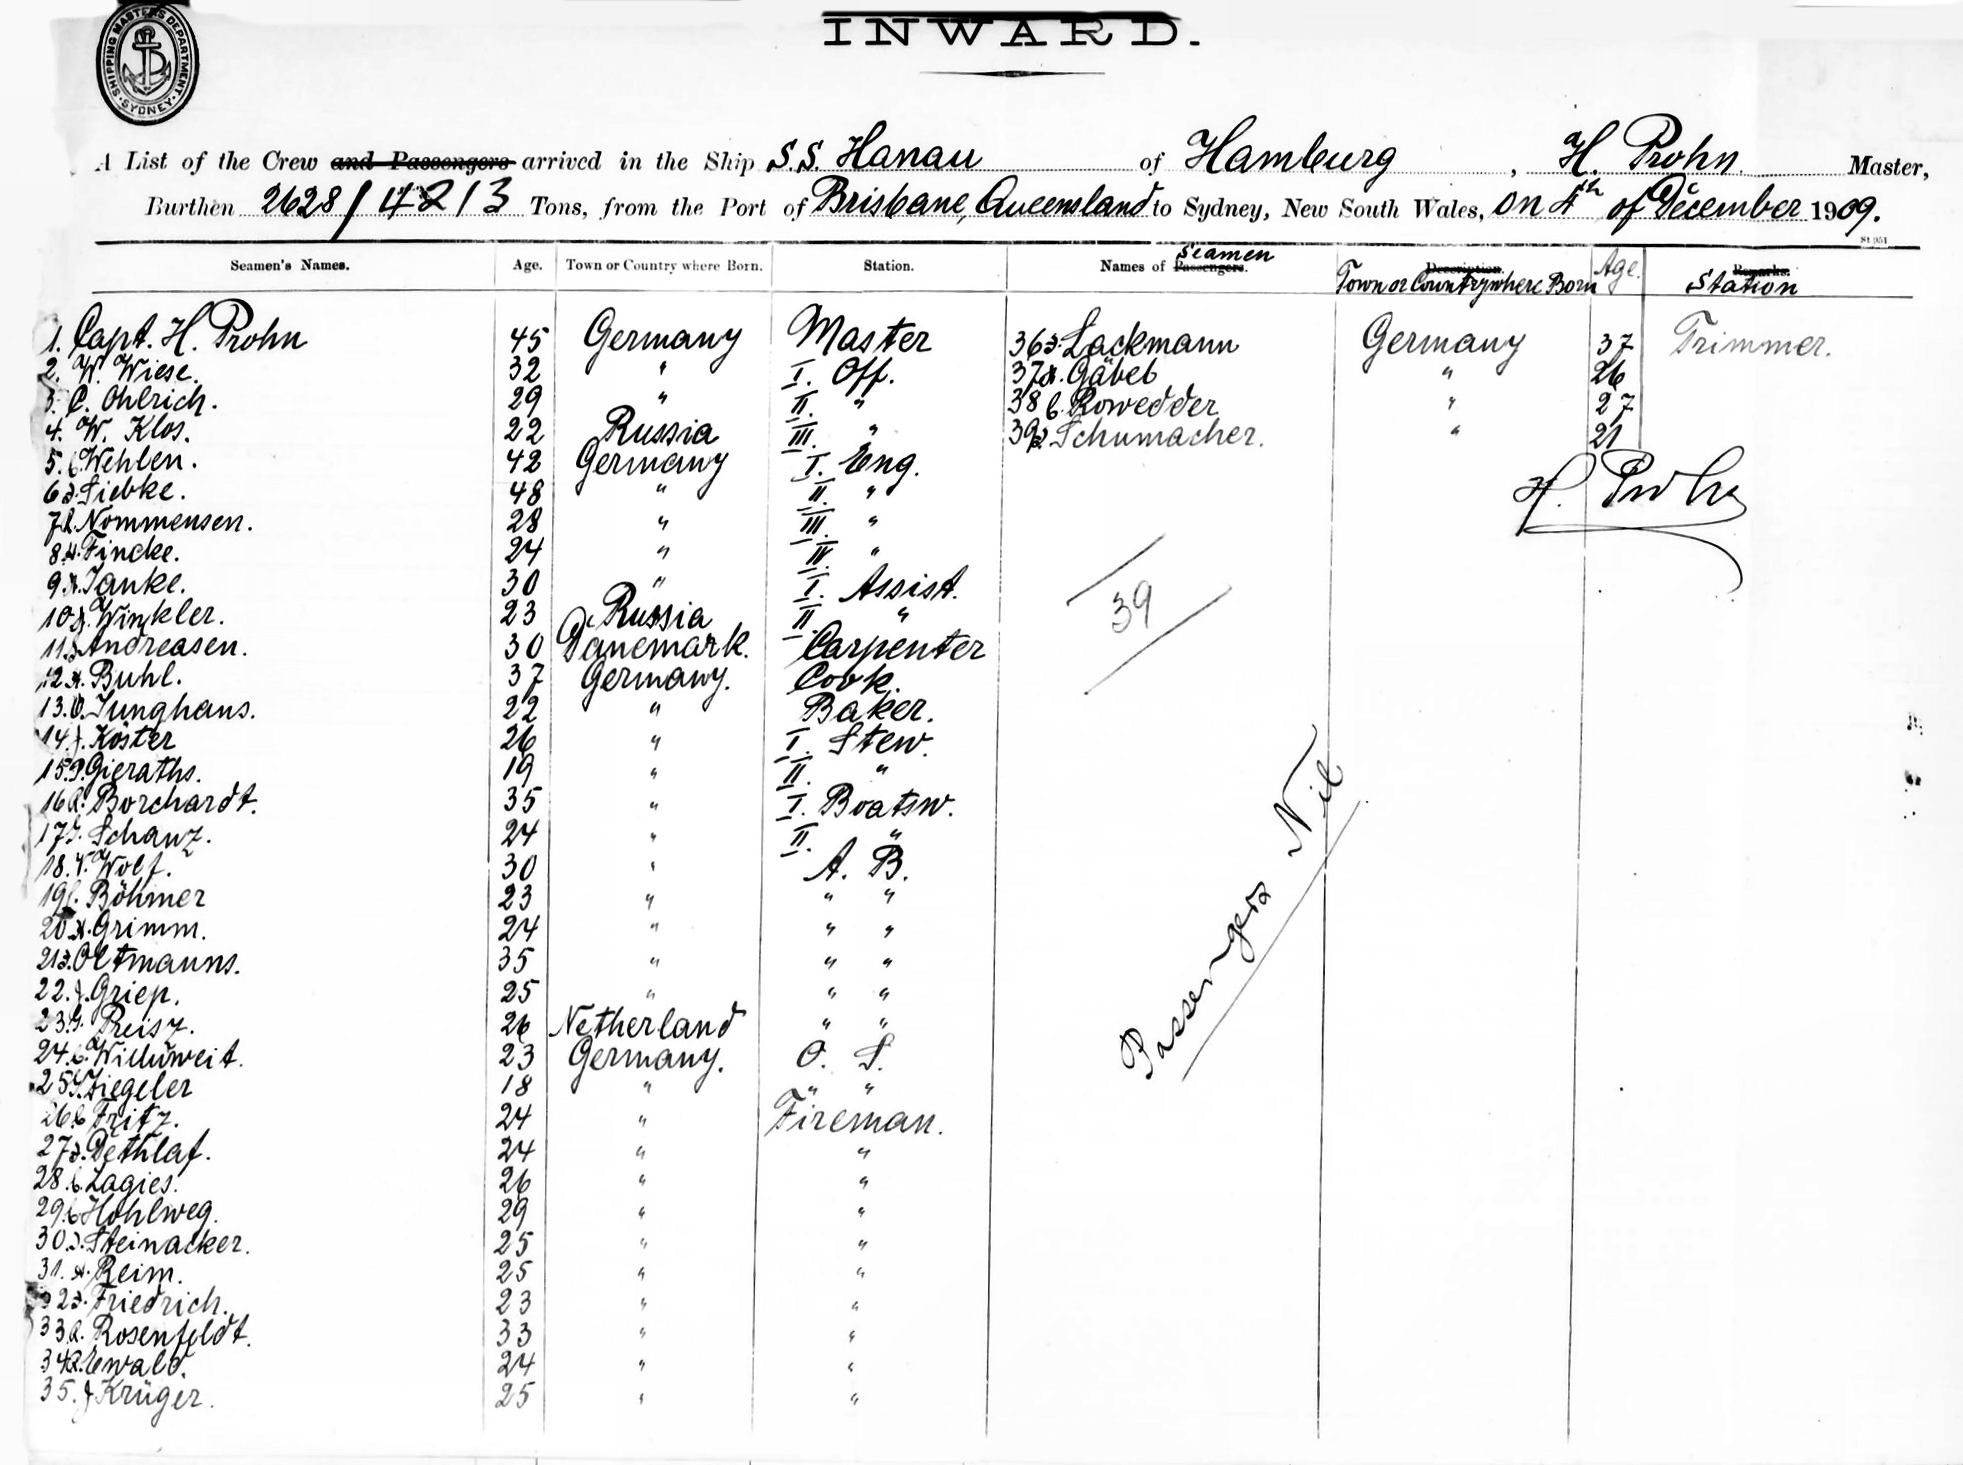 SHIPPING MASTERS DEPARTMENT SYDNEY
INWARD.
A List of the Crew and Passengers arrived in the Ship S.S. Hanau of Hamburg, H. Prohn Master,
Burthen 2628/4213 Tons, from the Port of Brisbane, Queensland to Sydney, New South Wales, on 4th of December 1909.
St 951
Seamen's Names. Age. Town or Country where Born. Station. Names of Passengers. Seamen Description. Town or Country where Born Age. Remarks. Station
1. Capt. H. Prohn 45 Germany Master 36 Lackmann Germany 37 Trimmer.
2. W. Wiese. 32 " I. Off. 37 Gäbel " 26
3. C. Ohlrich. 29 " II. " 38 Rowedder " 27
4. W. Klos. 22 Russia III. " 39 Schumacher. " 21
5. Wehlen. 42 Germany I. Eng.
H. Prohn
6 Siebke. 48 " II. "
7 Nommensen. 28 " III. "
8 Fincke. 24 " IV "
9 Janke. 30 " I. Assist.
39
10 Winkler. 23 Russia II. "
11 Andreasen. 30 Dänemark. Carpenter
12 Buhl. 37 Germany. Cook.
13. Junghans. 22 " Baker.
14 J. Köster 26 " I. Stew.
15 P. Gieraths. 19 " II. "
16 Borchardt. 35 " I. Boatsw.
17 Schanz. 24 " II. "
18. Wolf. 30 " A. B.
19 Böhmer 23 " " "
20 Grimm. 24 " " "
21 Oltmanns. 35 " " "
22. J. Griep. 25 " " "
23 Preisz. 26 Netherland " "
24. Willuweit. 23 Germany. O. S.
25 Ziegeler 18 " " "
26 Fritz. 24 " Fireman.
27 Dethlaf. 24 " "
28 Lagies. 26 " "
29 Hohlweg. 29 " "
30 Steinacker. 25 " "
31. Reim. 25 " "
32 Friedrich. 23 " "
33 Rosenfeldt. 33 " "
34 Ewald. 24 " "
35. J Krüger. 25 " "
Passengers Nil